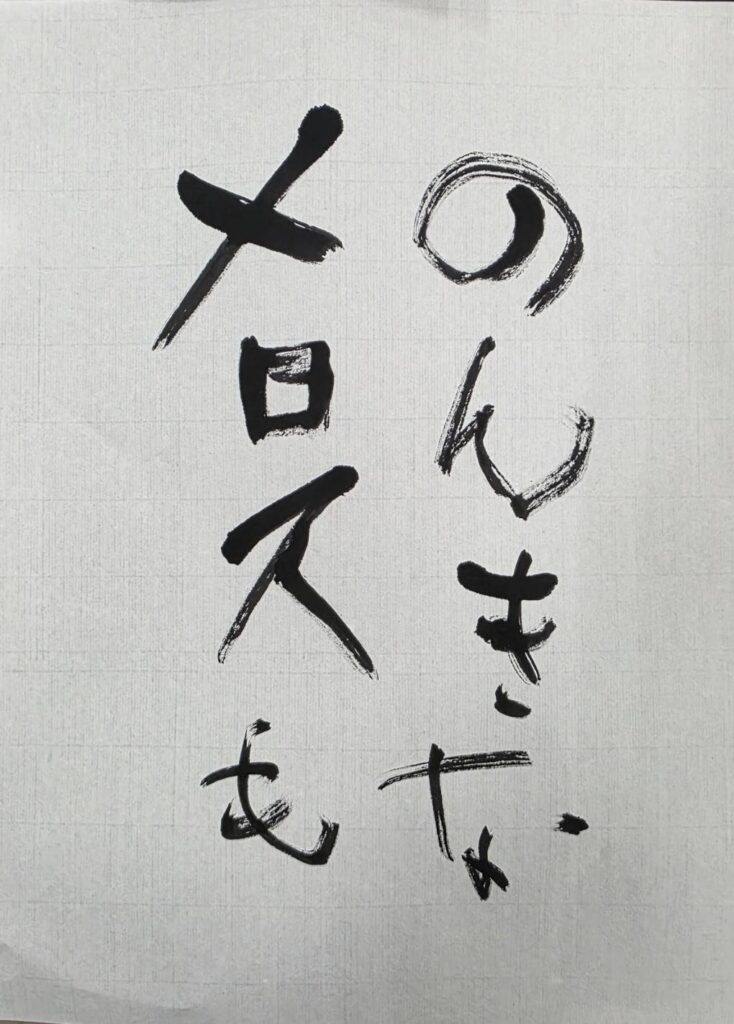 のんきな
メロスも